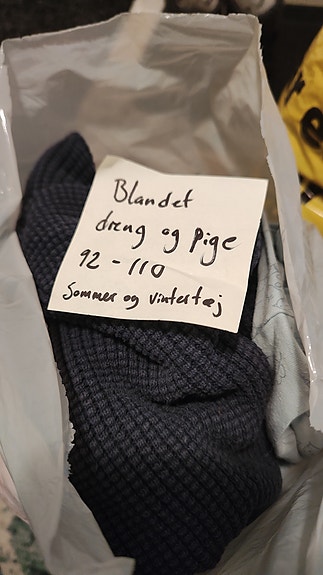 Blandet
dreng og Pige
92 - 110
Sommer og vintertøj